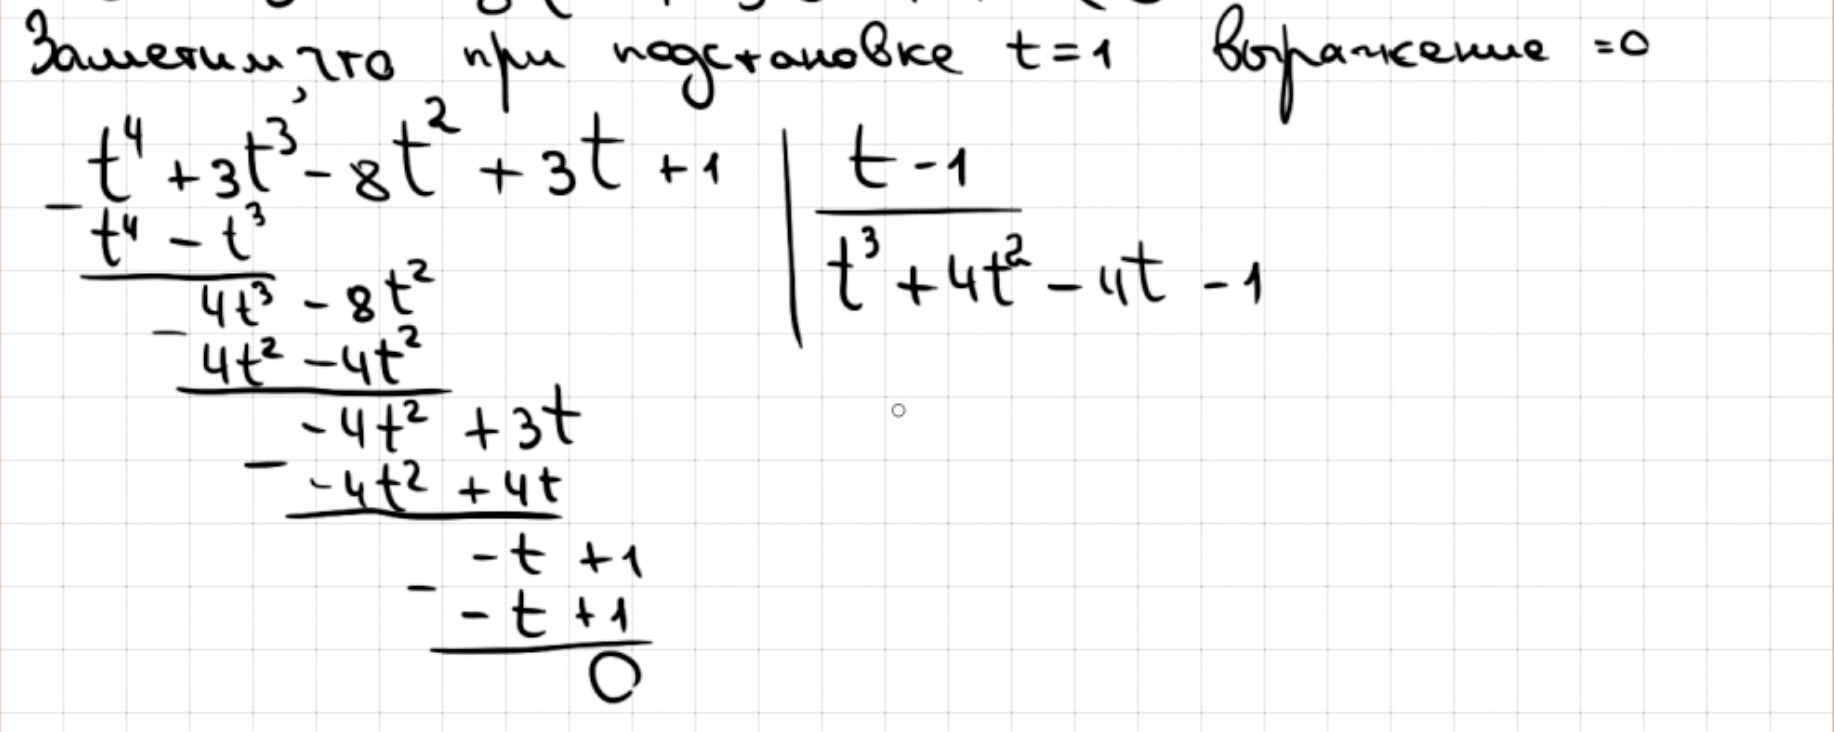 Заметим, что при подстановке t=1 выражение =0
t⁴ + 3t³ - 8t² + 3t + 1 | t - 1
- t⁴ - t³ | t³ + 4t² - 4t - 1
4t³ - 8t²
- 4t² - 4t²
-4t² + 3t
- -4t² + 4t
-t + 1
- -t + 1
0